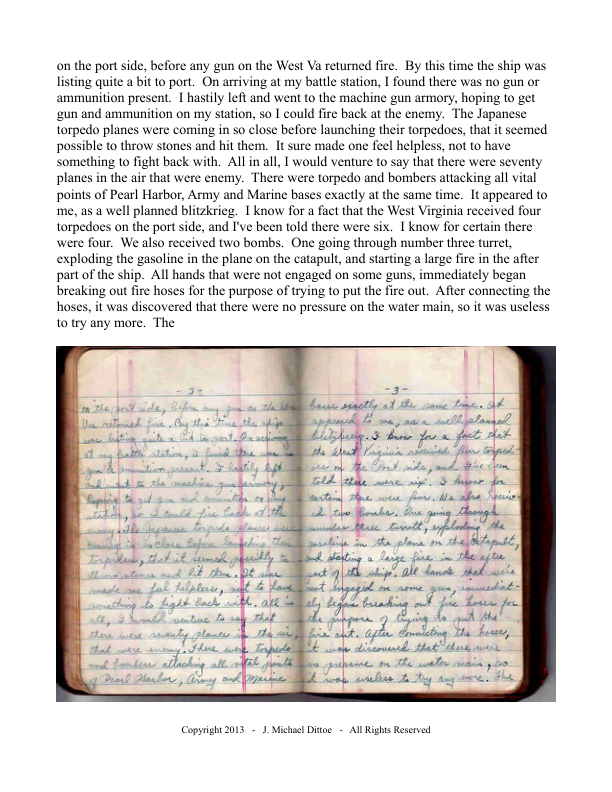 on the port side, before any gun on the West Va returned fire.  By this time the ship was
listing quite a bit to port.  On arriving at my battle station, I found there was no gun or
ammunition present.  I hastily left and went to the machine gun armory, hoping to get
gun and ammunition on my station, so I could fire back at the enemy.  The Japanese
torpedo planes were coming in so close before launching their torpedoes, that it seemed
possible to throw stones and hit them.  It sure made one feel helpless, not to have
something to fight back with.  All in all, I would venture to say that there were seventy
planes in the air that were enemy.  There were torpedo and bombers attacking all vital
points of Pearl Harbor, Army and Marine bases exactly at the same time.  It appeared to
me, as a well planned blitzkrieg.  I know for a fact that the West Virginia received four
torpedoes on the port side, and I've been told there were six.  I know for certain there
were four.  We also received two bombs.  One going through number three turret,
exploding the gasoline in the plane on the catapult, and starting a large fire in the after
part of the ship.  All hands that were not engaged on some guns, immediately began
breaking out fire hoses for the purpose of trying to put the fire out.  After connecting the
hoses, it was discovered that there were no pressure on the water main, so it was useless
to try any more.  The
- 3 -
on the port side, before any gun on the West
Va returned fire. By this time the ship
was listing quite a bit to port. On arriving
at my battle station, I found there was no
gun or ammunition present. I hastily left
and went to the machine gun armory,
hoping to get gun and ammunition on my
station, so I could fire back at the
enemy. The Japanese torpedo planes were
coming in so close before launching their
torpedoes, that it seemed possible to
throw stones and hit them. It sure
made one feel helpless, not to have
something to fight back with. All in
all, I would venture to say that
there were seventy planes in the air,
that were enemy. There were torpedo
and bombers attacking all vital points
of Pearl Harbor, Army and Marine
- 3 -
bases exactly at the same time. It
appeared to me, as a well planned
blitzkrieg. I know for a fact that
the West Virginia received four torped-
oes on the port side, and I've been
told there were six. I know for
certain there were four. We also receiv-
ed two bombs. One going through
number three turrett, exploding the
gasoline in the plane on the catapult,
and starting a large fire in the after
part of the ship. All hands that were
not engaged on some guns, immediat-
ely began breaking out fire hoses for
the purpose of trying to put the
fire out. After connecting the hoses,
it was discovered that there were
no pressure on the water main, so
it was useless to try any more. The
Copyright 2013   -   J. Michael Dittoe   -   All Rights Reserved